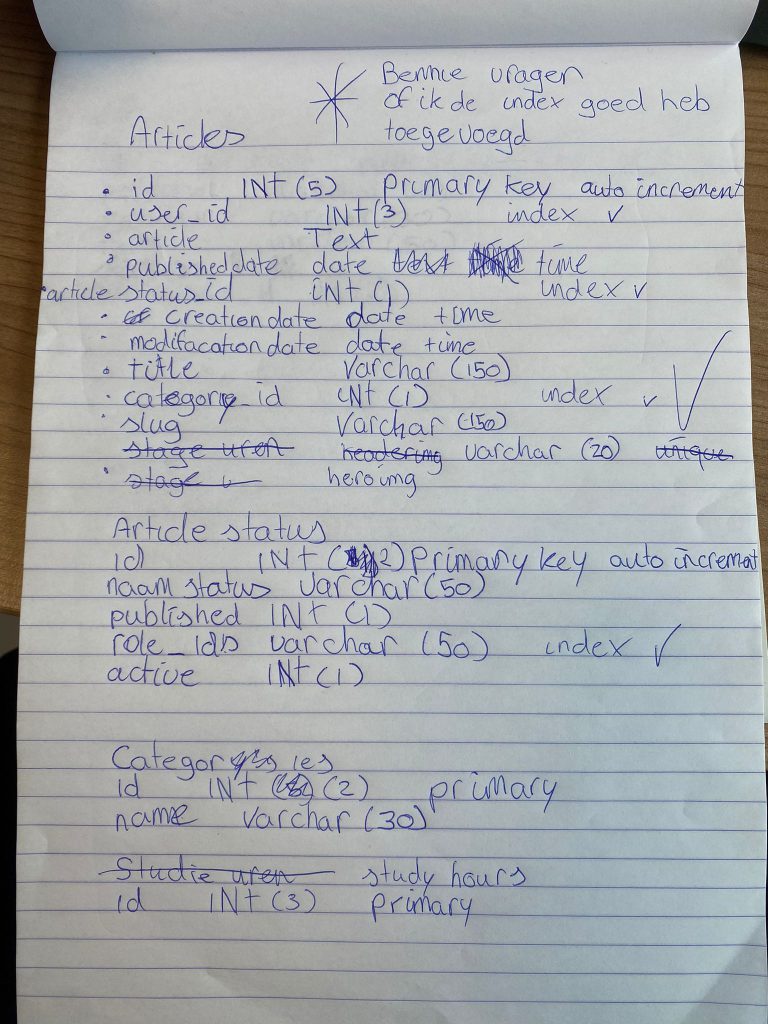 Bennie vragen
of ik de index goed heb
toegevoegd
Articles
• id INt (5) primary key auto increment
• user_id INt (3) index ✓
• article Text
• published date date time
• article status_id iNt (1) index ✓
• creation date date time
• modifacation date date time
• title Varchar (150)
• category_id iNt (1) index ✓
• slug Varchar (150)
stage uren headering varchar (20) unique
• stage u hero img
Article status
id INt (2) primary key auto increment
naam status varchar (50)
published INt (1)
role_ids varchar (50) index ✓
active INt (1)
Categories
id INt (2) primary
name varchar (30)
Studie uren study hours
id INt (3) primary